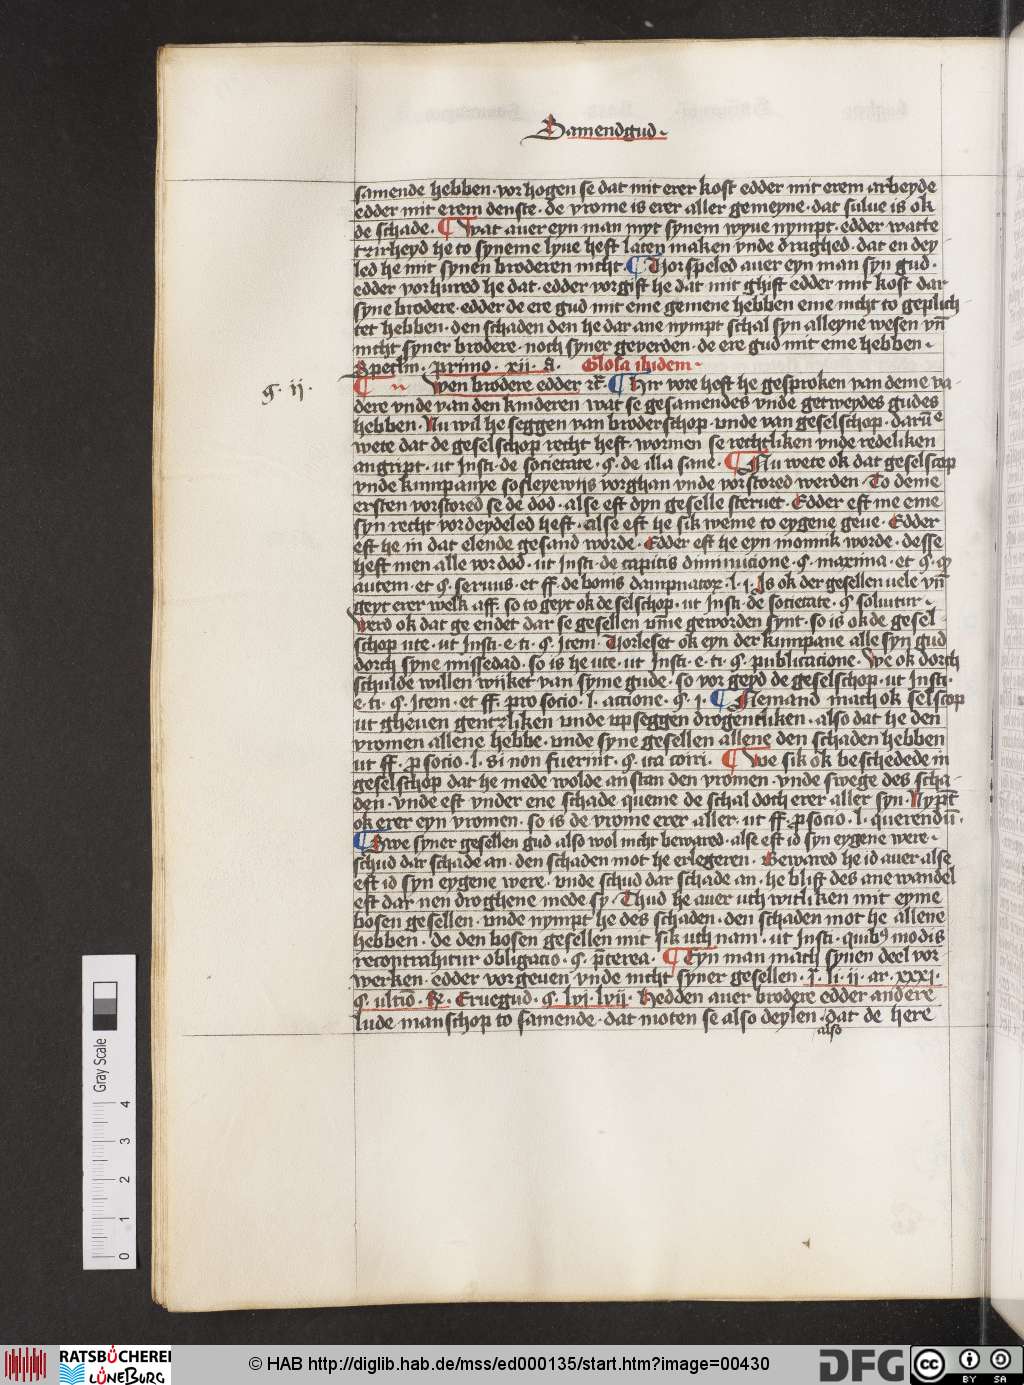 Samendgud
samende hebben · vorhogen se dat mit erer kost edder mit erem arbeyde
edder mit erem denste · de vrome is erer aller gemeyne · dat sulue is ok
de schade · ¶ Wat auer eyn man myt synem wyue nympt · edder watte
tzirheyd he to syneme lyue heft laten maken vnde drughed · dat en dey
led he mit synen broderen nicht · ¶ Vorspeled auer eyn man syn gud ·
edder vorhured he dat · edder vorgift he dat mit ghift edder mit kost dar
syne brodere · edder de ere gud mit eme gemene hebben eme nicht to geplich
tet hebben · den schaden den he dar ane nympt schal syn alleyne wesen vn̄
nicht syner brodere · noch syner geverden · de ere gud mit eme hebben ·
Specłm · primo · xii · a · Glosa ibidem ·
g · ij ·
¶ Wen brodere edder ꝛc̄ · ¶ Hir vore heft he gesproken van deme va
dere vnde van den kinderen wat se gesamendes vnde getweydes gudes
hebben · Nu wil he seggen van broderschop · vnde van geselschop · darū̄e
wete dat de geselschop recht heft · wormen se rechtliken vnde redeliken
angript · ut Insti · de societate · §. de illa sane · ¶ Nu wete ok dat geselscop
vnde kumpanye sosleyewijs vorghan vnde vorstored werden · To deme
ersten vorstored se de dod · alse eft dyn geselle steruet · Edder eft me eme
syn recht vordeydeled heft · alse eft he sik weme to eygene geue · Edder
eft he in dat elende gesand worde · Edder eft he eyn monnik worde · desse
heft men alle vor dod · ut Insti · de capitis diminucione · §. maxima · et §. ꝙ
autem · et §. seruus · et ff. de bonis dampnatoꝝ · l · i · Is ok der gesellen vele vn̄
geyt erer welk aff · so to geyt ok de selschop · ut Insti · de societate · § soluitur ·
Werd ok dat ge endet dar se gesellen vm̄e geworden synt · so is ok de gesel
schop ute · ut Insti · e · ti · §. Item · Vorleset ok eyn der kumpane alle syn gud
dorch syne missedad · so is he ute · ut Insti · e · ti · §. publicacione · We ok dorch
schulde willen wijket van syme gude · so vor geyd de geselschop · ut Insti ·
e · ti · §. Item · et ff. pro socio · l · actione · §. j · ¶ Niemand mach ok selscop
ut gheuen gentzliken vnde upseggen drogentliken · also dat he den
vromen allene hebbe · vnde syne gesellen allene den schaden hebben
ut ff. ꝓ socio · l · si non fuerint · §. ita coiri · ¶ We sik ok beschedede in
geselschop dat he mede wolde anstan den vromen · vnde swege des scha
den · vnde eft vnder ene schade queme de schal doch erer aller syn · Nympt
ok erer eyn vromen · so is de vrome erer aller · ut ff. ꝓ socio · l · querendū ·
¶ Swe syner gesellen gud also wol nicht bewared · alse eft id syn eygene were ·
schud dar schade an · den schaden mot he erlegeren · Bewared he id auer alse
eft id syn eygene were · vnde schud dar schade an · he blift des ane wandel
eft dar nen droghene mede sy · Thud he auer vth witliken mit eyme
bosen gesellen · vnde nympt he des schaden · den schaden mot he allene
hebben · de den bosen gesellen mit sik uth nam · ut Insti · quibꝰ modis
recontrahitur obligacio · §. p̄terea · ¶ Eyn man mach synen deel vor
werken · edder vorgeuen vnde nicht syner gesellen · j · li · ii · ar · xxxi ·
§. ultīo · R̄ · Eruegud · §. lvi · lvij · Hedden auer brodere edder andere
lude manschop to samende · dat moten se also deylen · dat de here
also
Gray Scale
0 1 2 3 4
RATSBÜCHEREI
LÜNEBURG
© HAB http://diglib.hab.de/mss/ed000135/start.htm?image=00430
DFG
cc
BY SA